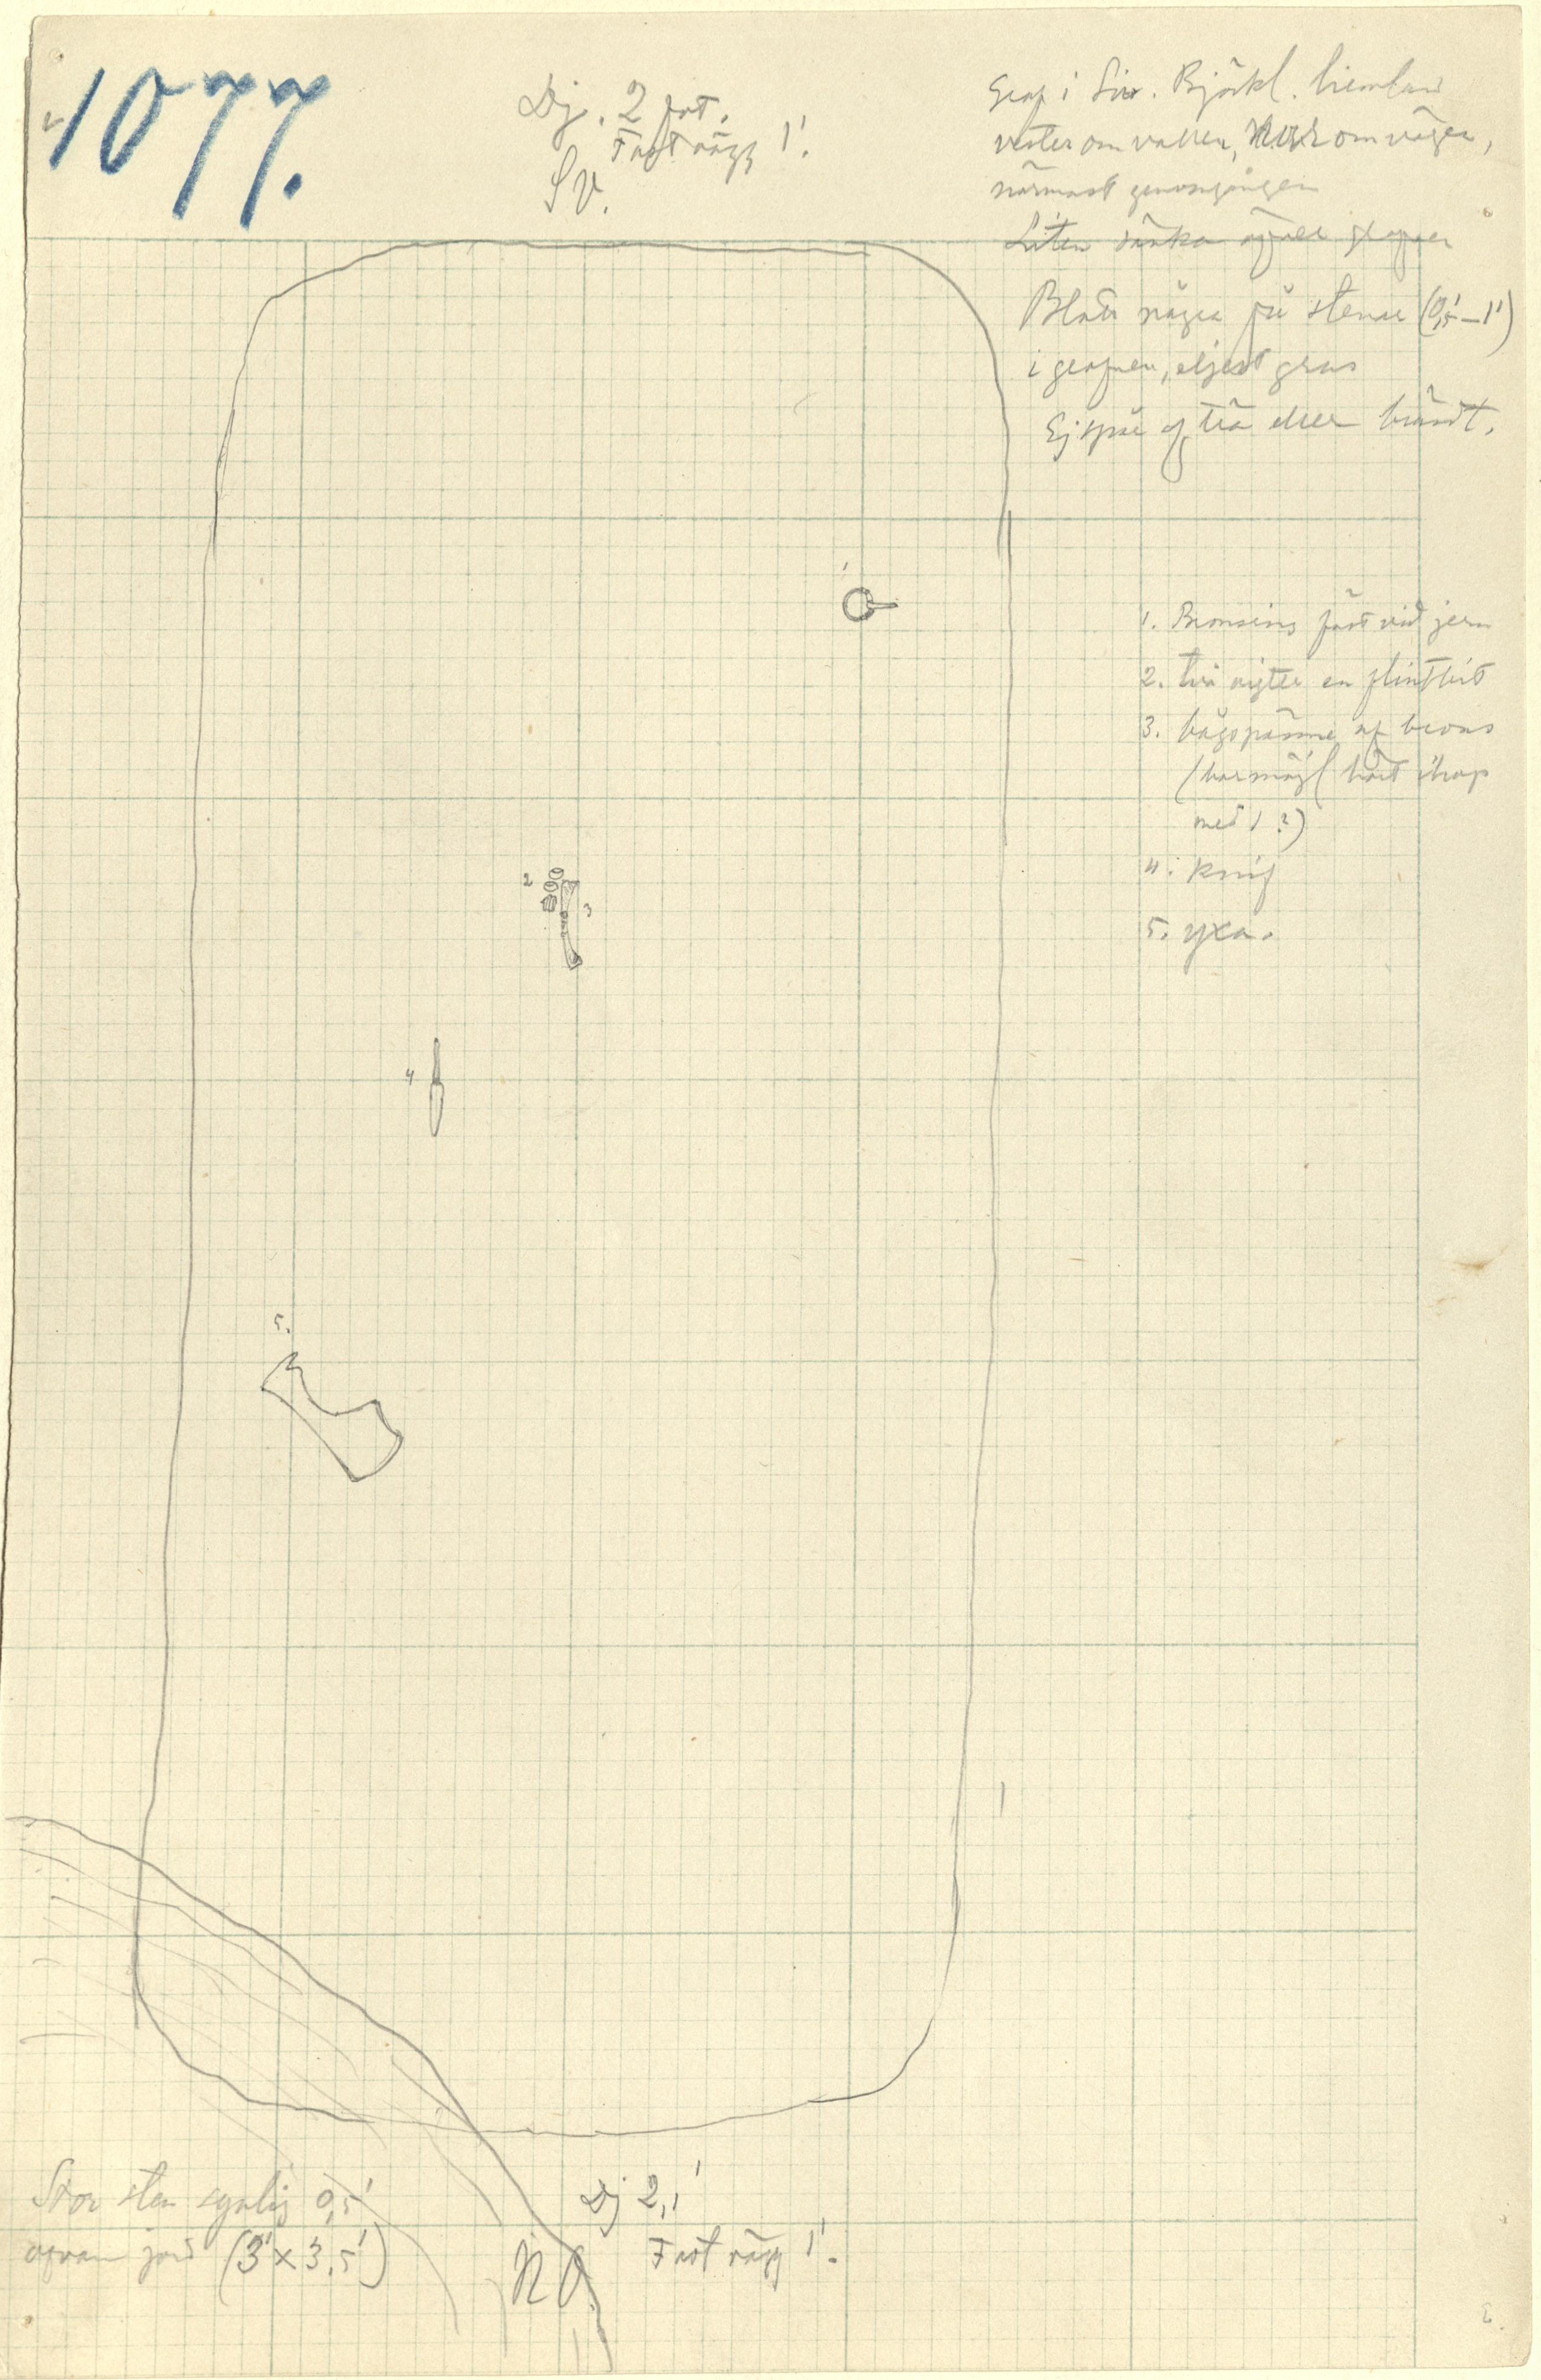 1077.
Dj. 2 fot.
Fast vägg 1'.
SV.
Graf i Liv. Björkl. hemland
vester om vallen, Norr om vägen,
närmast genomgången
Liten sänka öfver grafven
Blott några få stenar (0,5'–1')
i grafven, eljest grus
Ej spår af trä eller brändt.
1
1. Bronsring fäst vid jern
2. två vigter en flintbit
3. bågspänne af brons
(har möjl hört ihop
med 1 ?)
4. knif
5. yxa.
2
3
4
5.
Stor sten synlig 0,5'
ofvan jord (3' x 3,5')
Dj 2,1'
Fast vägg 1'.
NO.